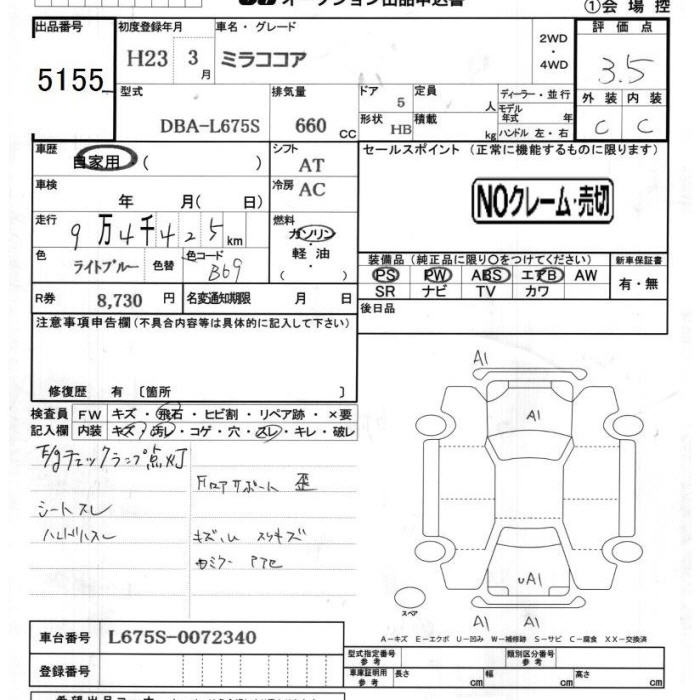 オークション出品申込書
①会場控
出品番号
5155
初度登録年月
H23 3月
車名・グレード
ミラココア
2WD
・
4WD
評価点
3.5
外装 内装
C C
型式
DBA-L675S
排気量
660 cc
ドア 5
形状 HB
定員 人
積載 kg
ディーラー・並行
モデル年式 年
ハンドル 左・右
車歴
自家用( )
シフト
AT
冷房 AC
車検
年 月( 日)
走行
9万4千425km
燃料
ガソリン
軽油
( )
色
ライトブルー
色替
色コード
B69
R券 8,730 円
名変通知期限 月 日
セールスポイント(正常に機能するものに限ります)
NOクレーム・売切
装備品(純正品に限り○をつけてください)
PS PW ABS エアB AW
SR ナビ TV カワ
新車保証書
有・無
後日品
注意事項申告欄(不具合内容等は具体的に記入して下さい)
修復歴 有〔箇所 〕
検査員記入欄
FW キズ・飛石・ヒビ割・リペア跡・×要
内装 キズ・汚レ・コゲ・穴・スレ・キレ・破レ
E/gチェックランプ点灯
シートスレ
ハンドルスレ
Fロアサポート 歪
キズ凹 スリキズ
A1
A1
uA1
A1 A1
スペア
A－キズ E－エクボ U－凹み W－補修跡 S－サビ C－腐食 XX－交換済
車台番号 L675S-0072340
登録番号
型式指定番号参考
類別区分番号参考
車庫証明用参考 長さ cm 幅 cm 高さ cm
希望出品コーナー